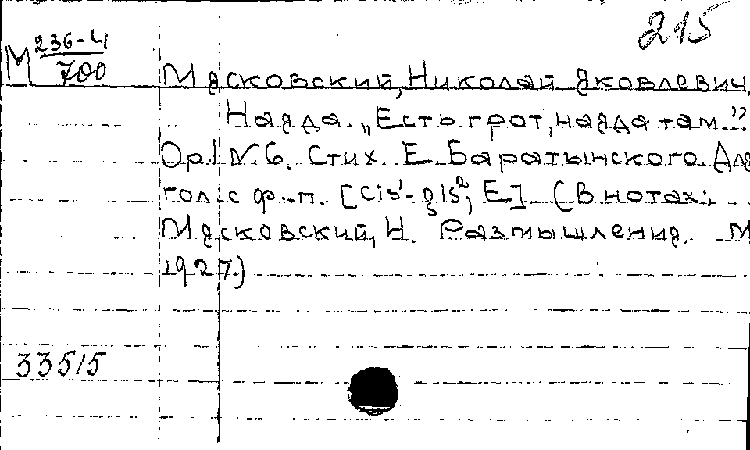 215
М 236-4/700
Мясковский, Николай Яковлевич.
Наяда. „Есть грот, наяда там..."
Ор.1 N.6. Стих. Е. Баратынского. Для
гол. с ф.-п. [cis¹-gis², E] (В нотах:
Мясковский, Н. Размышления. М
1927.)
33515